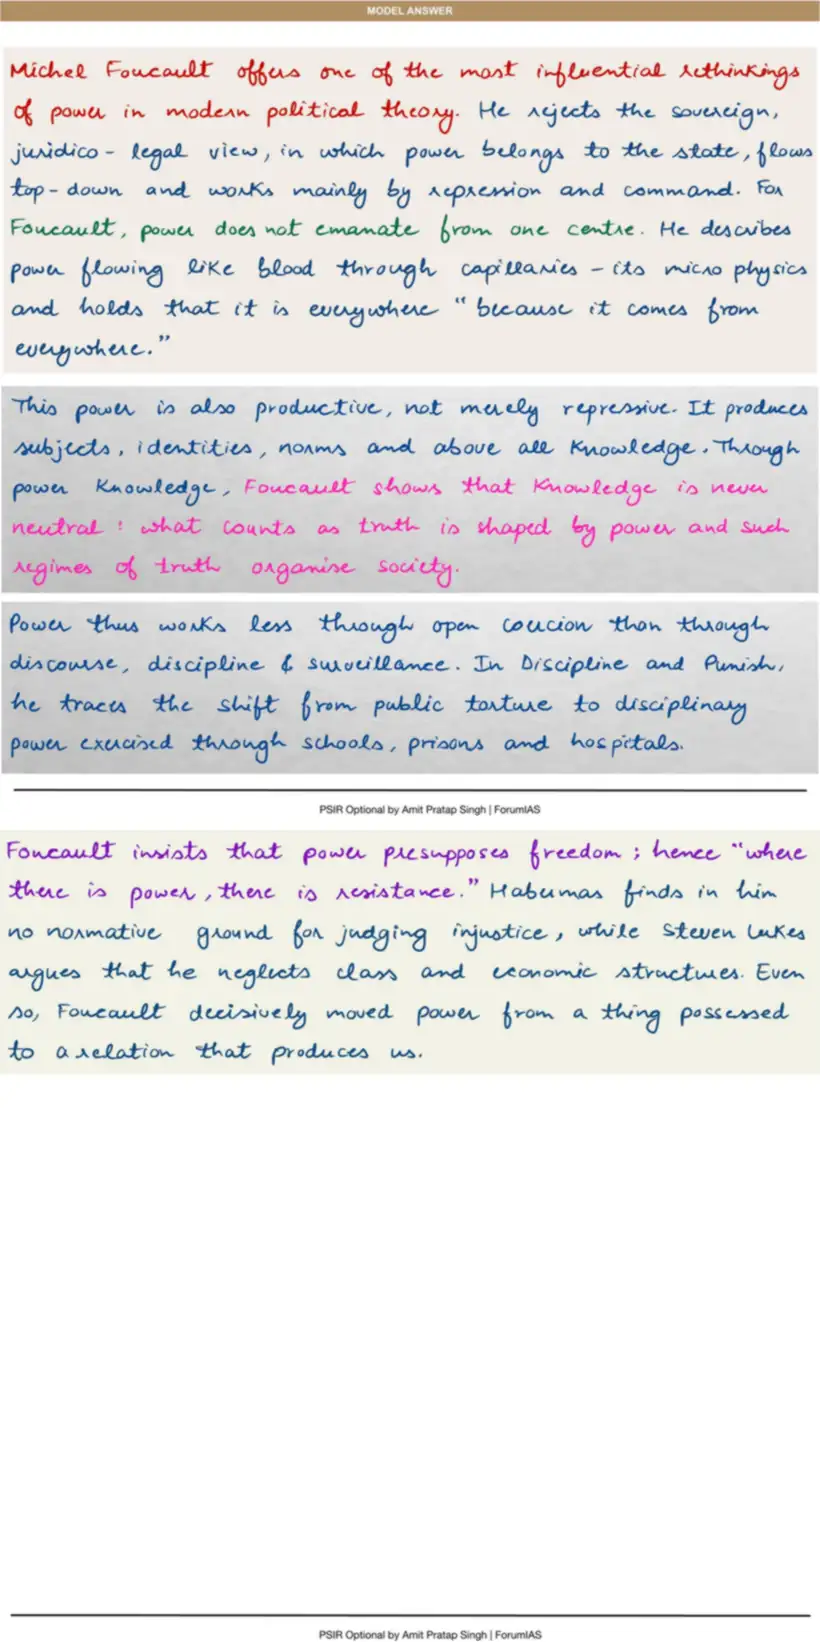 MODEL ANSWER
Michel Foucault offers one of the most influential rethinkings
of power in modern political theory. He rejects the sovereign,
juridico - legal view, in which power belongs to the state, flows
top-down and works mainly by repression and command. For
Foucault, power does not emanate from one centre. He describes
power flowing like blood through capillaries – its micro physics
and holds that it is everywhere "because it comes from
everywhere."
This power is also productive, not merely repressive. It produces
subjects, identities, norms and above all Knowledge. Through
power Knowledge, Foucault shows that Knowledge is never
neutral : what counts as truth is shaped by power and such
regimes of truth organise society.
Power thus works less through open coercion than through
discourse, discipline & surveillance. In Discipline and Punish,
he traces the shift from public torture to disciplinary
power exercised through schools, prisons and hospitals.
PSIR Optional by Amit Pratap Singh | ForumIAS
Foucault insists that power presupposes freedom ; hence "where
there is power, there is resistance." Habermas finds in him
no normative ground for judging injustice, while Steven Lukes
argues that he neglects class and economic structures. Even
so, Foucault decisively moved power from a thing possessed
to a relation that produces us.
PSIR Optional by Amit Pratap Singh | ForumIAS